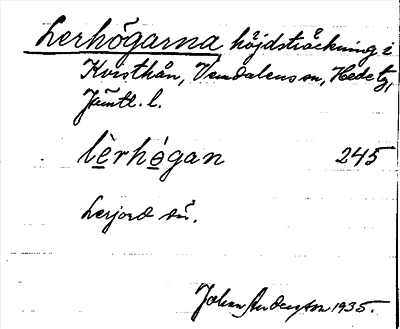 Lerhögarna höjdsträckning i
Kvisthån, Vemdalens sn, Hede tg,
Jämtl. l.
lèrhögan 245
Lerjord där.
Johan Andersson 1935.